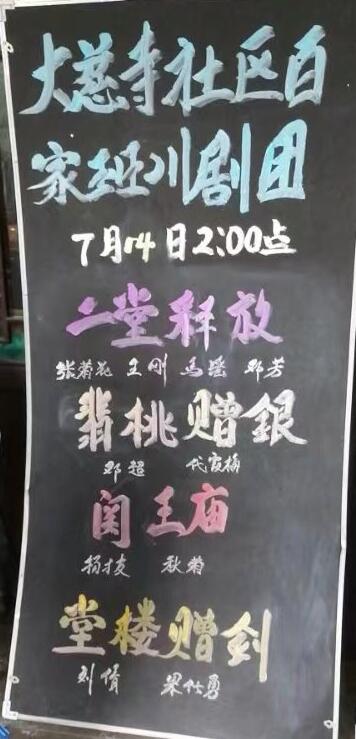 大慈寺社区百
家班川剧团
7月14日2:00点
二堂释放
张菊花 王刚 马瑶 邓芳
翡桃赠银
邓超 代霞梅
关王庙
杨友 秋菊
堂楼赠剑
刘倩 梁仕勇